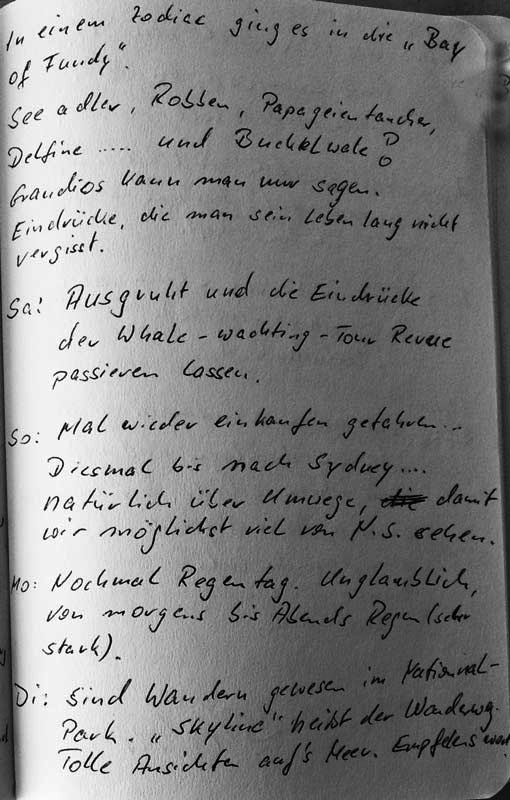 In einem Zodiac ging es in die „Bay
of Fundy".
Seeadler, Robben, Papageientaucher,
Delfine ..... und Buckelwale!
Grandios kann man nur sagen.
Eindrücke, die man sein Leben lang nicht
vergisst.
Sa: Ausgruht und die Eindrücke
der Whale-wachting-Tour Revue
passieren lassen.
So: Mal wieder einkaufen gefahren...
Diesmal bis nach Sydney....
natürlich über Umwege, damit
wir möglichst viel von N.S. sehen.
Mo: Nochmal Regentag. Unglaublich,
von morgens bis Abends Regen (sehr
stark).
Di: Sind Wandern gewesen im National-
Park. „Skyline" heißt der Wanderweg.
Tolle Ansichten auf's Meer.